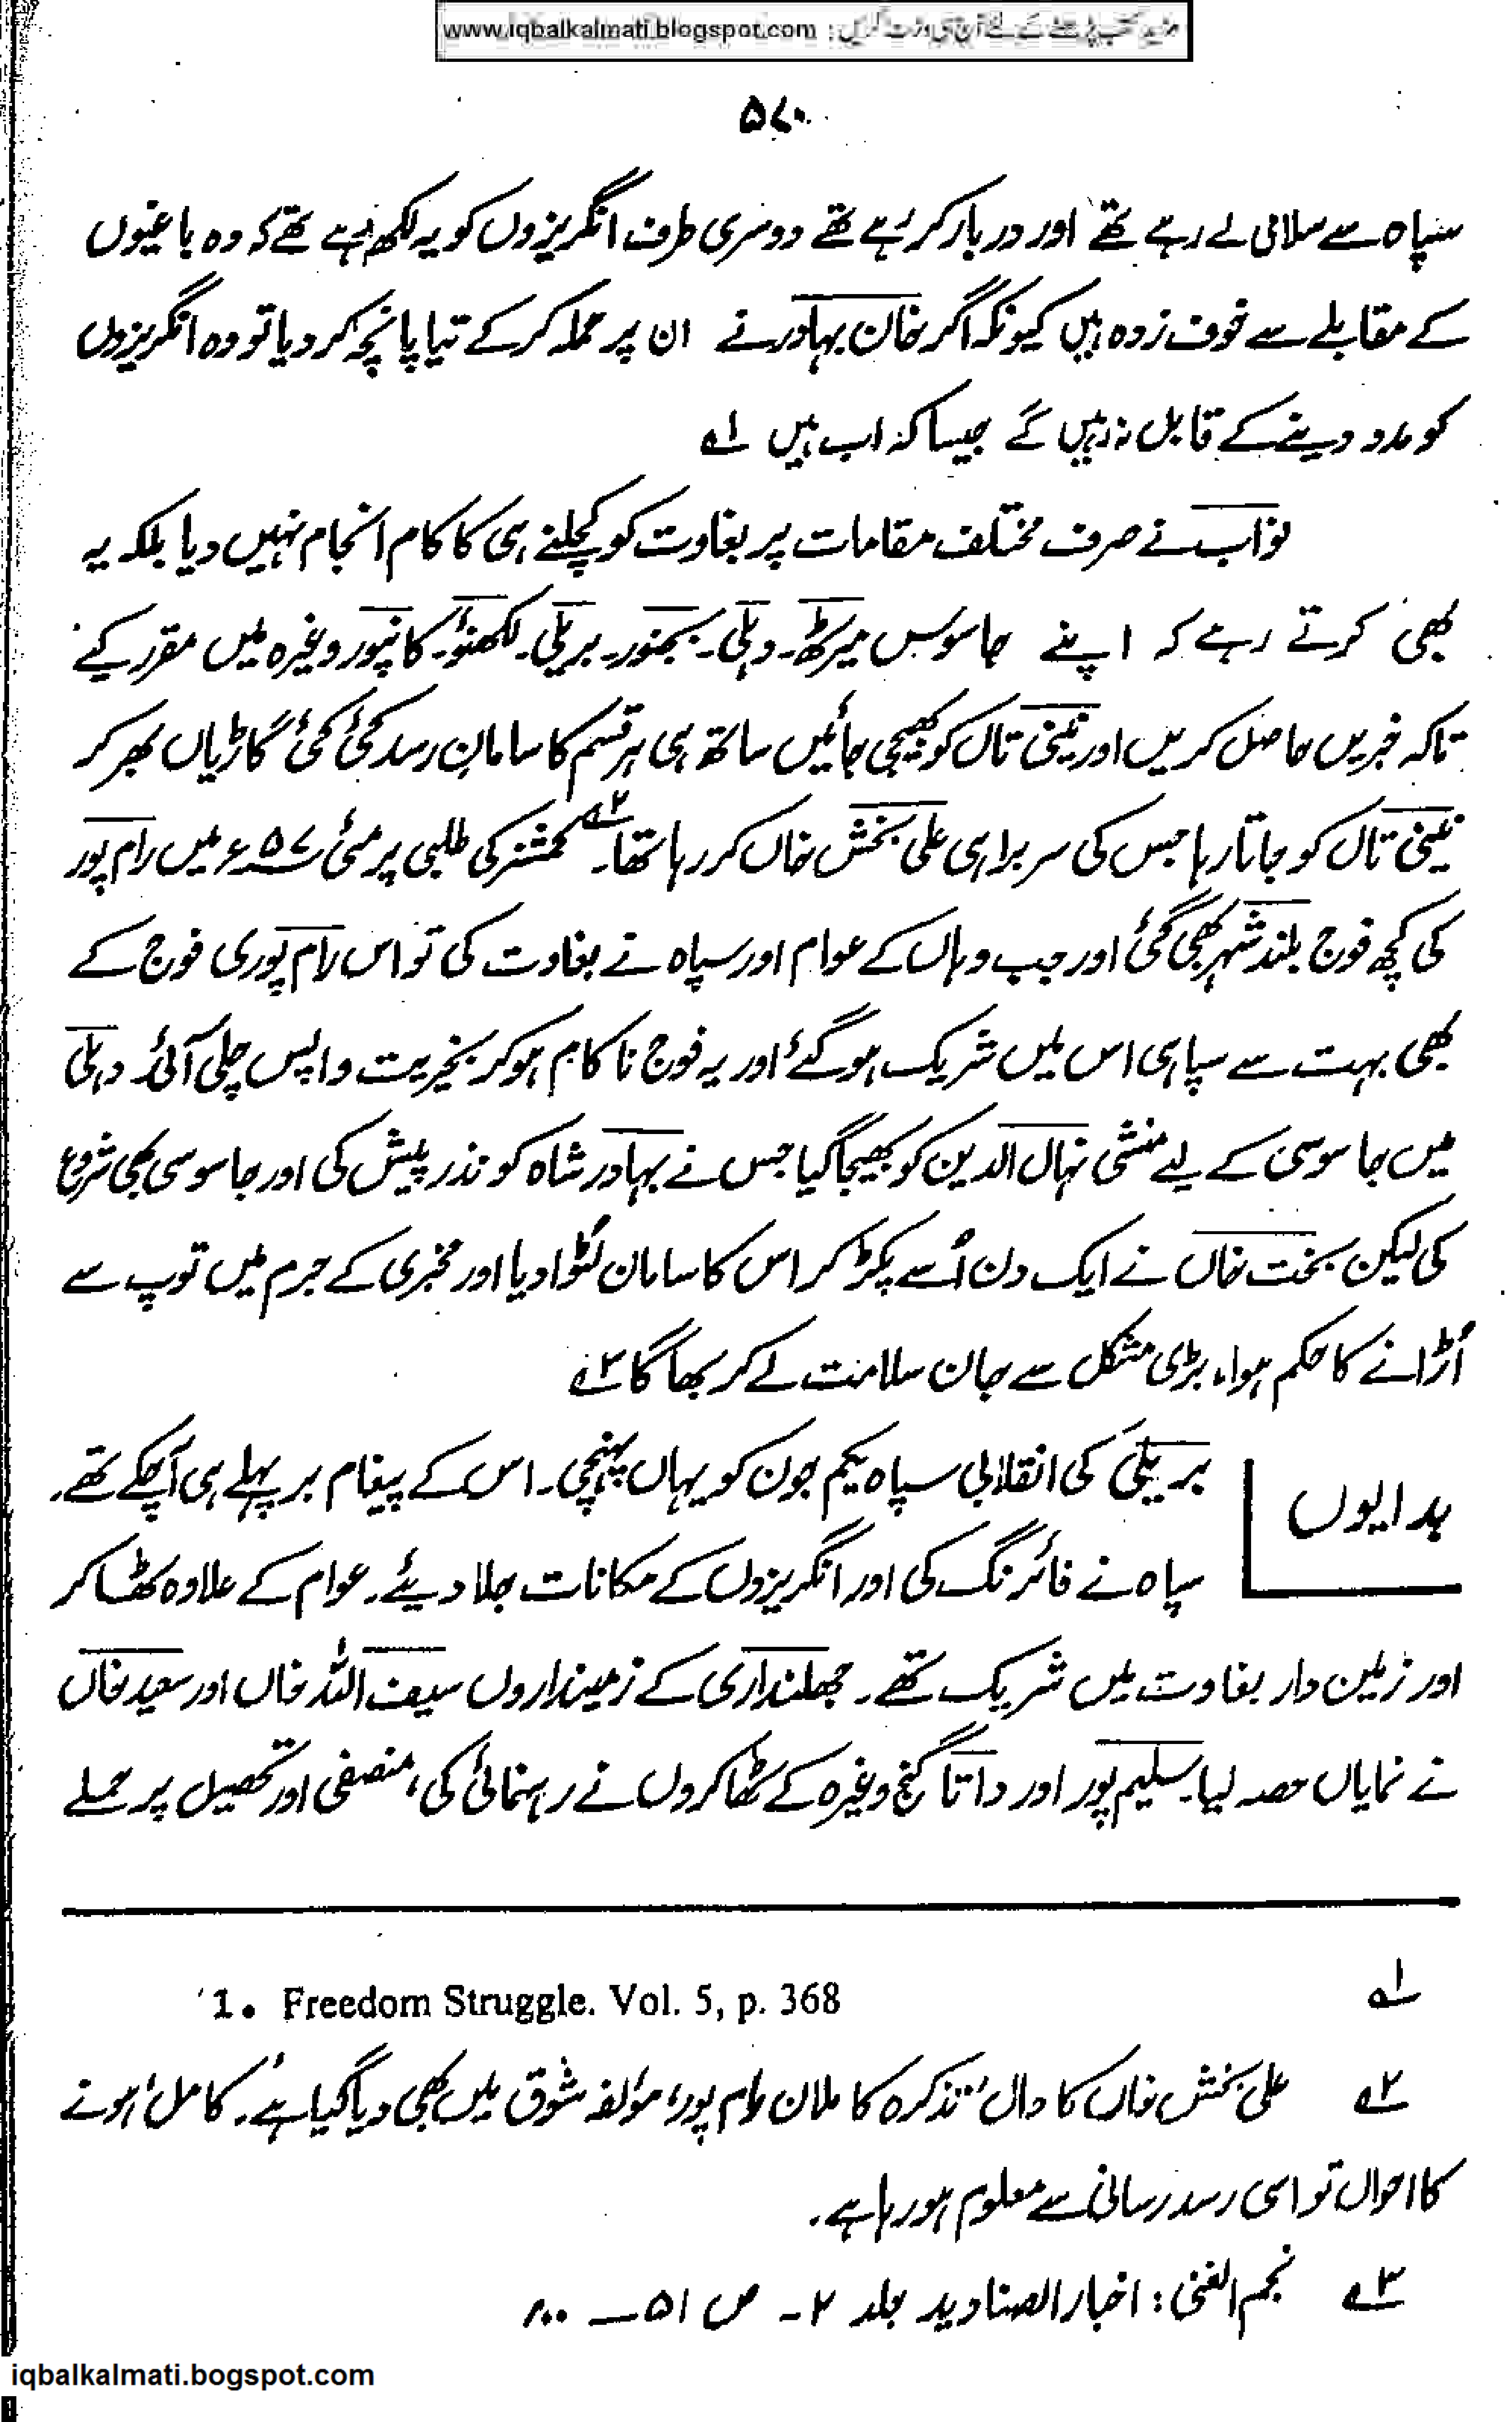 www.iqbalkalmati.blogspot.com : مزید کتب پڑھنے کے لئے آج ہی وزٹ کریں
۵۷۰
سپاہ سے سلامی لے رہے تھے اور دربار کر رہے تھے دوسری طرف انگریزوں کو یہ لکھ رہے تھے کہ وہ باغیوں
کے مقابلے سے خوف زدہ ہیں کیونکہ اگر خان بہادر نے ان پر حملہ کر کے تیا پانچہ کر دیا تو وہ انگریزوں
کو مدد دینے کے قابل نہ رہیں گے جیسا کہ اب ہیں ۱؎
نواب نے صرف مختلف مقامات پر بغاوت کو کچلنے ہی کا کام انجام نہیں دیا بلکہ یہ
بھی کرتے رہے کہ اپنے جاسوس میرٹھ۔ دہلی۔ بجنور۔ بریلی۔ لکھنؤ۔ کانپور وغیرہ میں مقرر کیے
تاکہ خبریں حاصل کریں اور نینی تال کو بھیجی جائیں ساتھ ہی ہر قسم کا سامانِ رسد کئی کئی گاڑیاں بھر کر
نینی تال کو جاتا رہا جس کی سربراہی علی بخش خاں کر رہا تھا۔۲؎ کمشنر کی طلبی پر مئی ۵۷ء میں رام پور
کی کچھ فوج بلند شہر بھی گئی اور جب وہاں کے عوام اور سپاہ نے بغاوت کی تو اس رام پوری فوج کے
بھی بہت سے سپاہی اس میں شریک ہو گئے اور یہ فوج ناکام ہو کر بخیریت واپس چلی آئی۔ دہلی
میں جاسوسی کے لیے منشی نہال الدین کو بھیجا گیا جس نے بہادر شاہ کو نذر پیش کی اور جاسوسی بھی شروع
کی لیکن بخت خاں نے ایک دن اُسے پکڑ کر اس کا سامان لُٹوا دیا اور مخبری کے جرم میں توپ سے
اُڑانے کا حکم ہوا، بڑی مشکل سے جان سلامت لے کر بھاگا ۳؎
بدایوں
بریلی کی انقلابی سپاہ یکم جون کو یہاں پہنچی۔ اس کے پیغام بر پہلے ہی آچکے تھے۔
سپاہ نے فائرنگ کی اور انگریزوں کے مکانات جلا دیئے۔ عوام کے علاوہ ٹھاکر
اور زمین دار بغاوت میں شریک تھے۔ جھلنداری کے زمینداروں سیف اللہ خاں اور سعید خاں
نے نمایاں حصہ لیا۔ سلیم پور اور داتا گنج وغیرہ کے ٹھاکروں نے رہنمائی کی، منصفی اور تحصیل پر حملے
۱؎ 1. Freedom Struggle. Vol. 5, p. 368
۲؎ علی بخش خاں کا حال ’تذکرہ کاملان رام پور‘ مؤلفہ شوق میں بھی دیا گیا ہے۔ ’کامل‘ ہونے
کا احوال تو اسی رسد رسانی سے معلوم ہو رہا ہے۔
۳؎ نجم الغنی : اخبار الصنادید جلد ۲ ۔ ص ۵۱ ۔
iqbalkalmati.bogspot.com